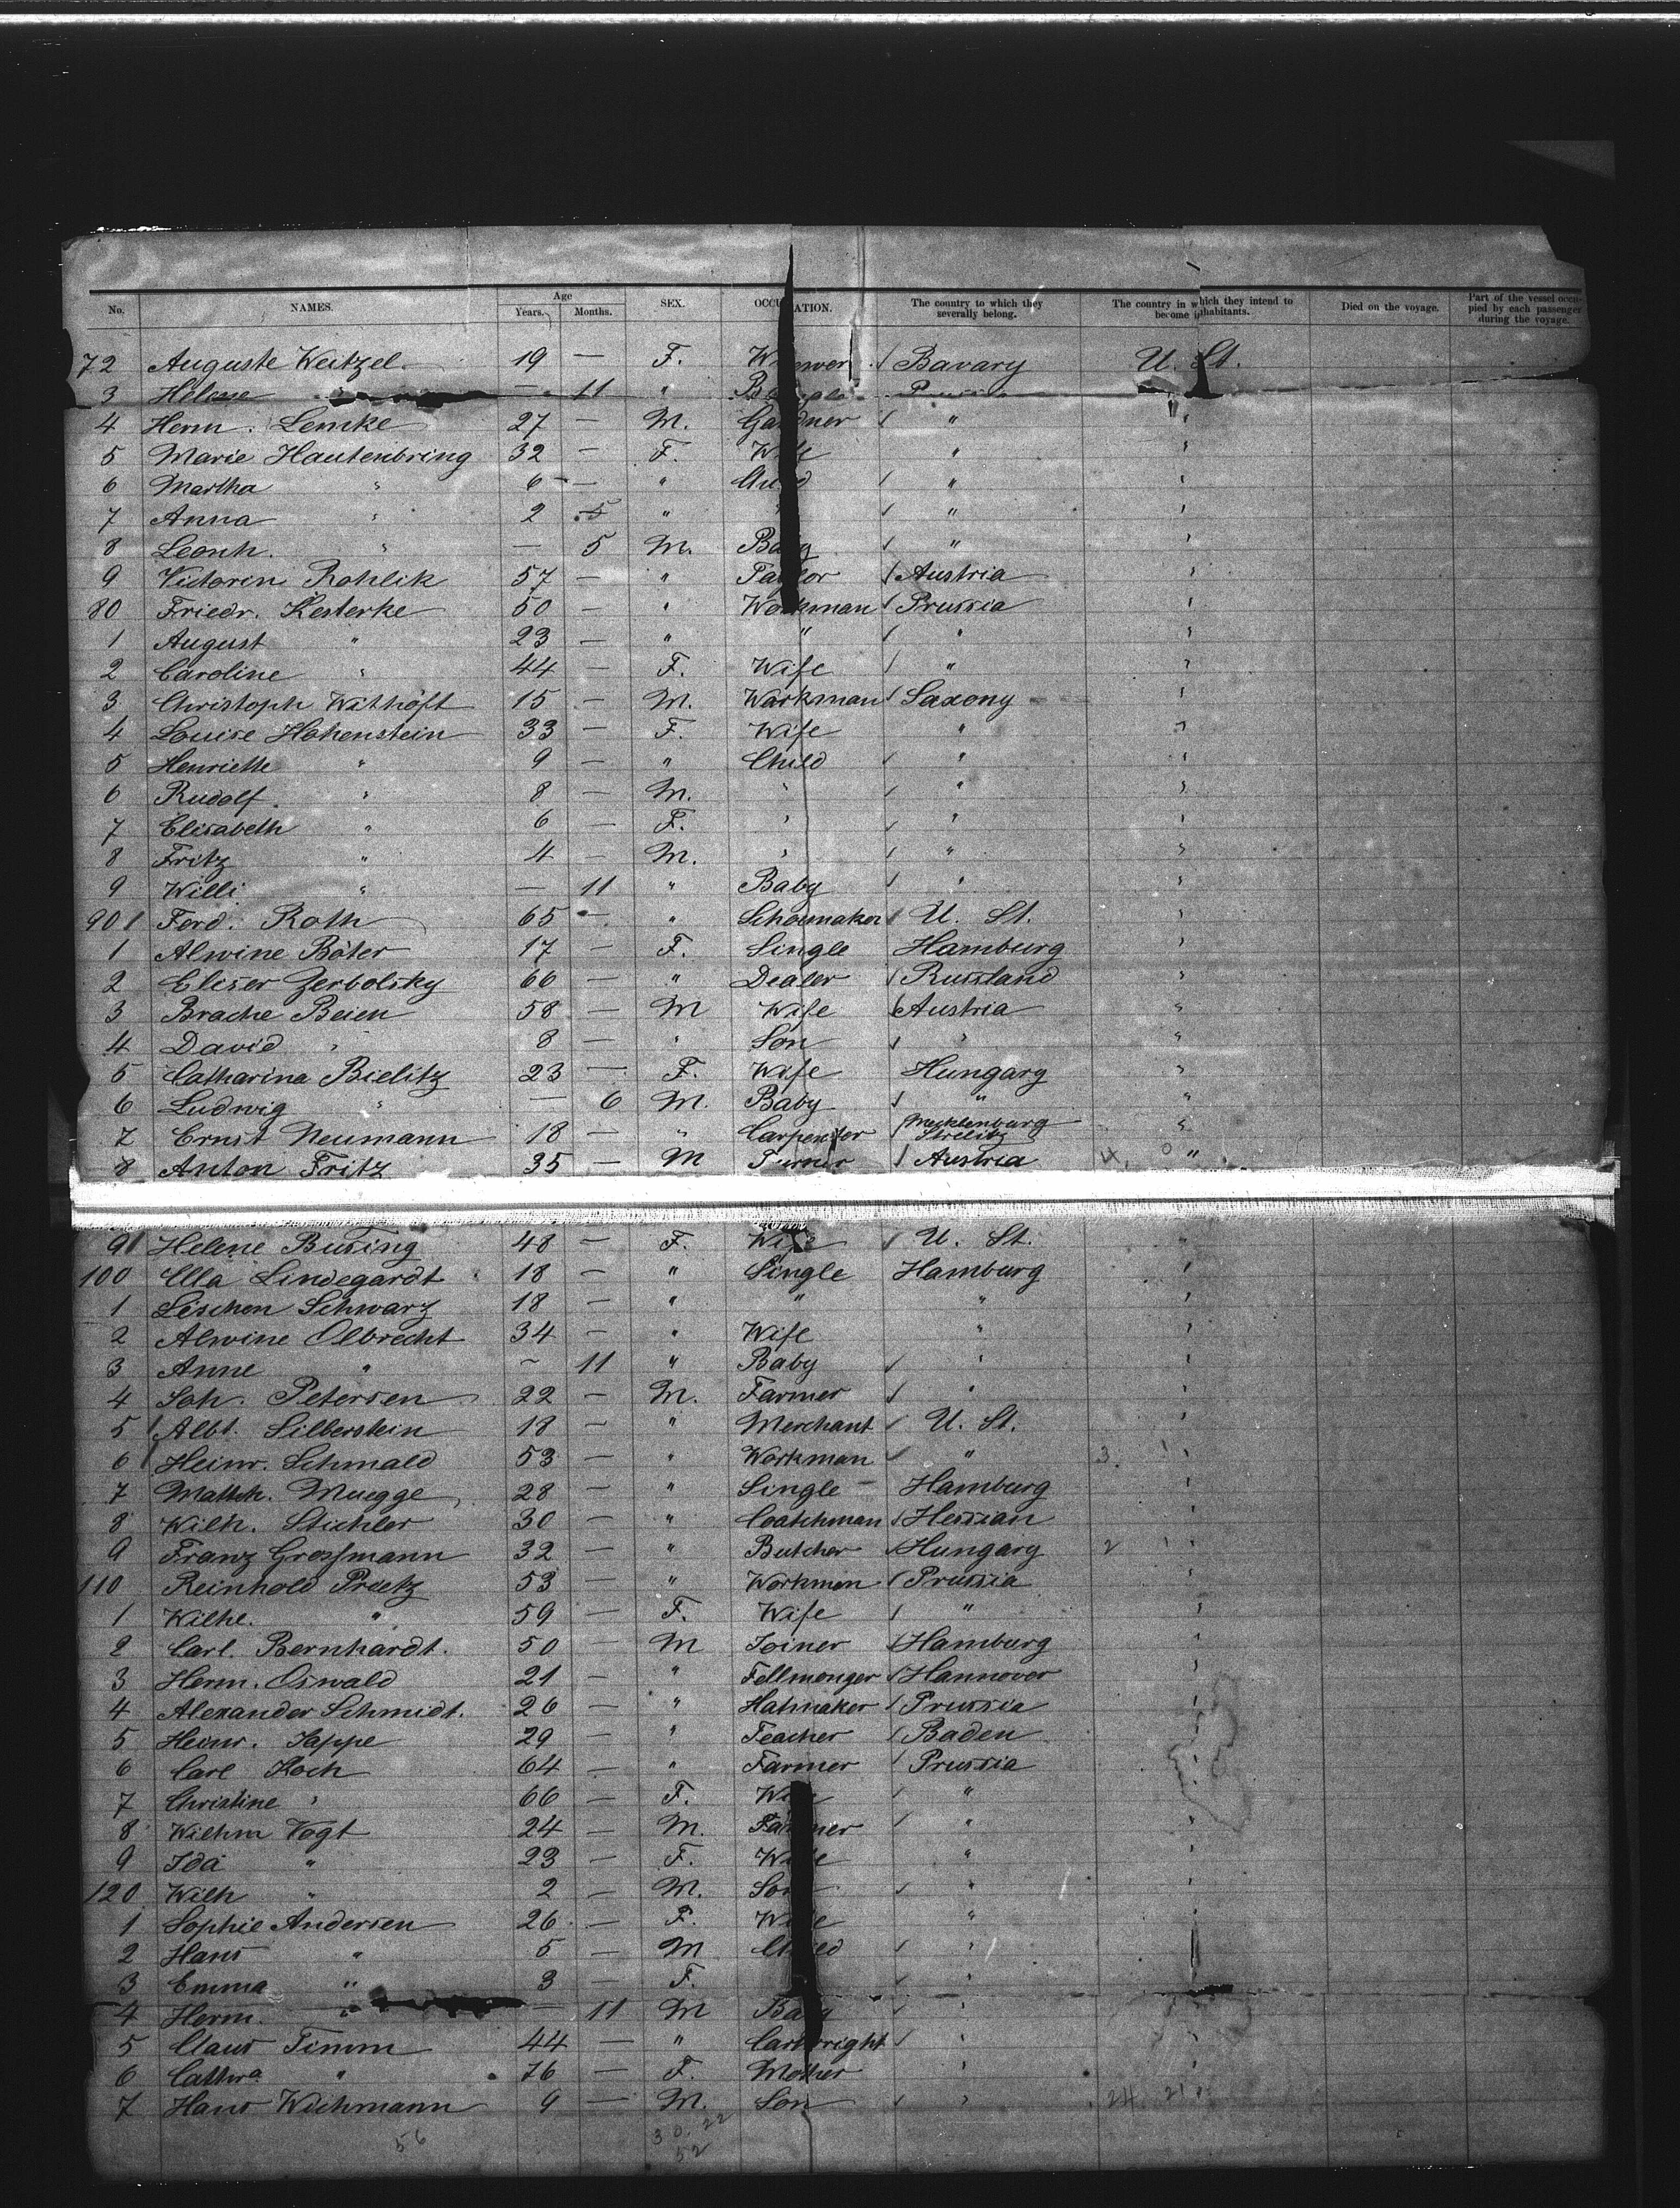 No. NAMES. Age Years. Months. SEX. OCCUPATION. The country to which they severally belong. The country in which they intend to become inhabitants. Died on the voyage. Part of the vessel occupied by each passenger during the voyage.
72 Auguste Weitzel 19 — F. Bavary U. St.
3 Helene — 11 "
4 Herm. Lemke 27 — M. Gardner " "
5 Marie Hautenbring 32 — F. Wife " "
6 Martha " 6 — " Child " "
7 Anna " 2 5 " " " "
8 Leonh. " — 5 M. Baby " "
9 Victorin Rohlik 57 — " Taylor Austria "
80 Friedr. Kesterke 50 — " Workman Prussia "
1 August " 23 — " " " "
2 Caroline " 44 — F. Wife " "
3 Christoph Wäthöft 15 — M. Workman Saxony "
4 Louise Hohenstein 33 — F. Wife " "
5 Henriette " 9 — " Child " "
6 Rudolf " 8 — M. " " "
7 Elisabeth " 6 — F. " " "
8 Fritz " 4 — M. " " "
9 Willi " — 11 " Baby " "
90 Ferd. Roth 65 — " Schoemaker U. St. "
1 Alwine Böter 17 — F. Single Hamburg "
2 Elieser Zerbolsky 66 — " Dealer Russland "
3 Brache Beien 58 — M Wife Austria "
4 David " 8 — " Son " "
5 Catharina Bielitz 23 — F. Wife Hungary "
6 Ludwig " — 6 M. Baby " "
7 Ernst Neumann 18 — " Carpenter Mecklenburg Strelitz "
8 Anton Fritz 35 — M Turner Austria "
9 Helene Büsing 48 — F. Wife U. St. "
100 Ella Lindegardt 18 — " Single Hamburg "
1 Lieschen Schwarz 18 — " " " "
2 Alwine Olbrecht 34 — " Wife " "
3 Anne " — 11 " Baby " "
4 Joh. Petersen 22 — M. Farmer " "
5 Albt. Silberstein 18 — " Merchant U. St. "
6 Heinr. Schmald 53 — " Workman " 3. "
7 Matth. Muegge 28 — " Single Hamburg "
8 Wilh. Stichler 30 — " Coatchman Hessian "
9 Franz Grossmann 32 — " Butcher Hungary 2 "
110 Reinhold Proetz 53 — " Workman Prussia "
1 Wilhe. " 59 — F. Wife " "
2 Carl. Bernhardt. 50 — M Joiner Hamburg "
3 Herm. Oswald 21 — " Fellmonger Hannover "
4 Alexander Schmidt. 26 — " Hatmaker Prussia "
5 Heinr. Jappe 29 — " Teacher Baden "
6 Carl Koch 64 — " Farmer Prussia "
7 Christine " 66 — F. Wife " "
8 Wilhm Vogt 24 — M. Farmer " "
9 Ida " 23 — F. Wife " "
120 Wilh " 2 — M. Son " "
1 Sophie Andersen 26 — F. Wife " "
2 Hans " 5 — M Child " "
3 Emma " 3 — F. " "
4 Herm. " — 11 M Baby " "
5 Claus Timm 44 — " Cartwright " "
6 Cathra. " 76 — F. Mother " "
7 Hans Wichmann 9 — M. Son " 24 21 "
56 30. 22
52